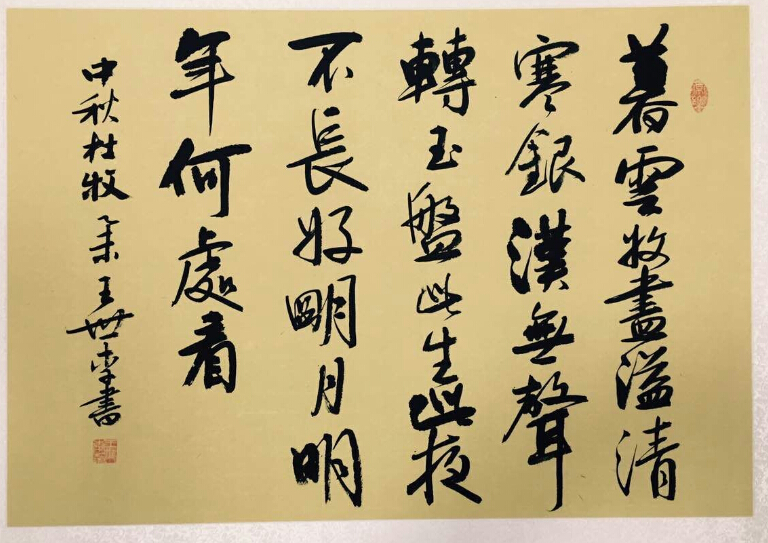 暮雲收盡溢清
寒銀漢無聲
轉玉盤此生此夜
不長好朙月明
年何處看
中秋杜牧 王世書